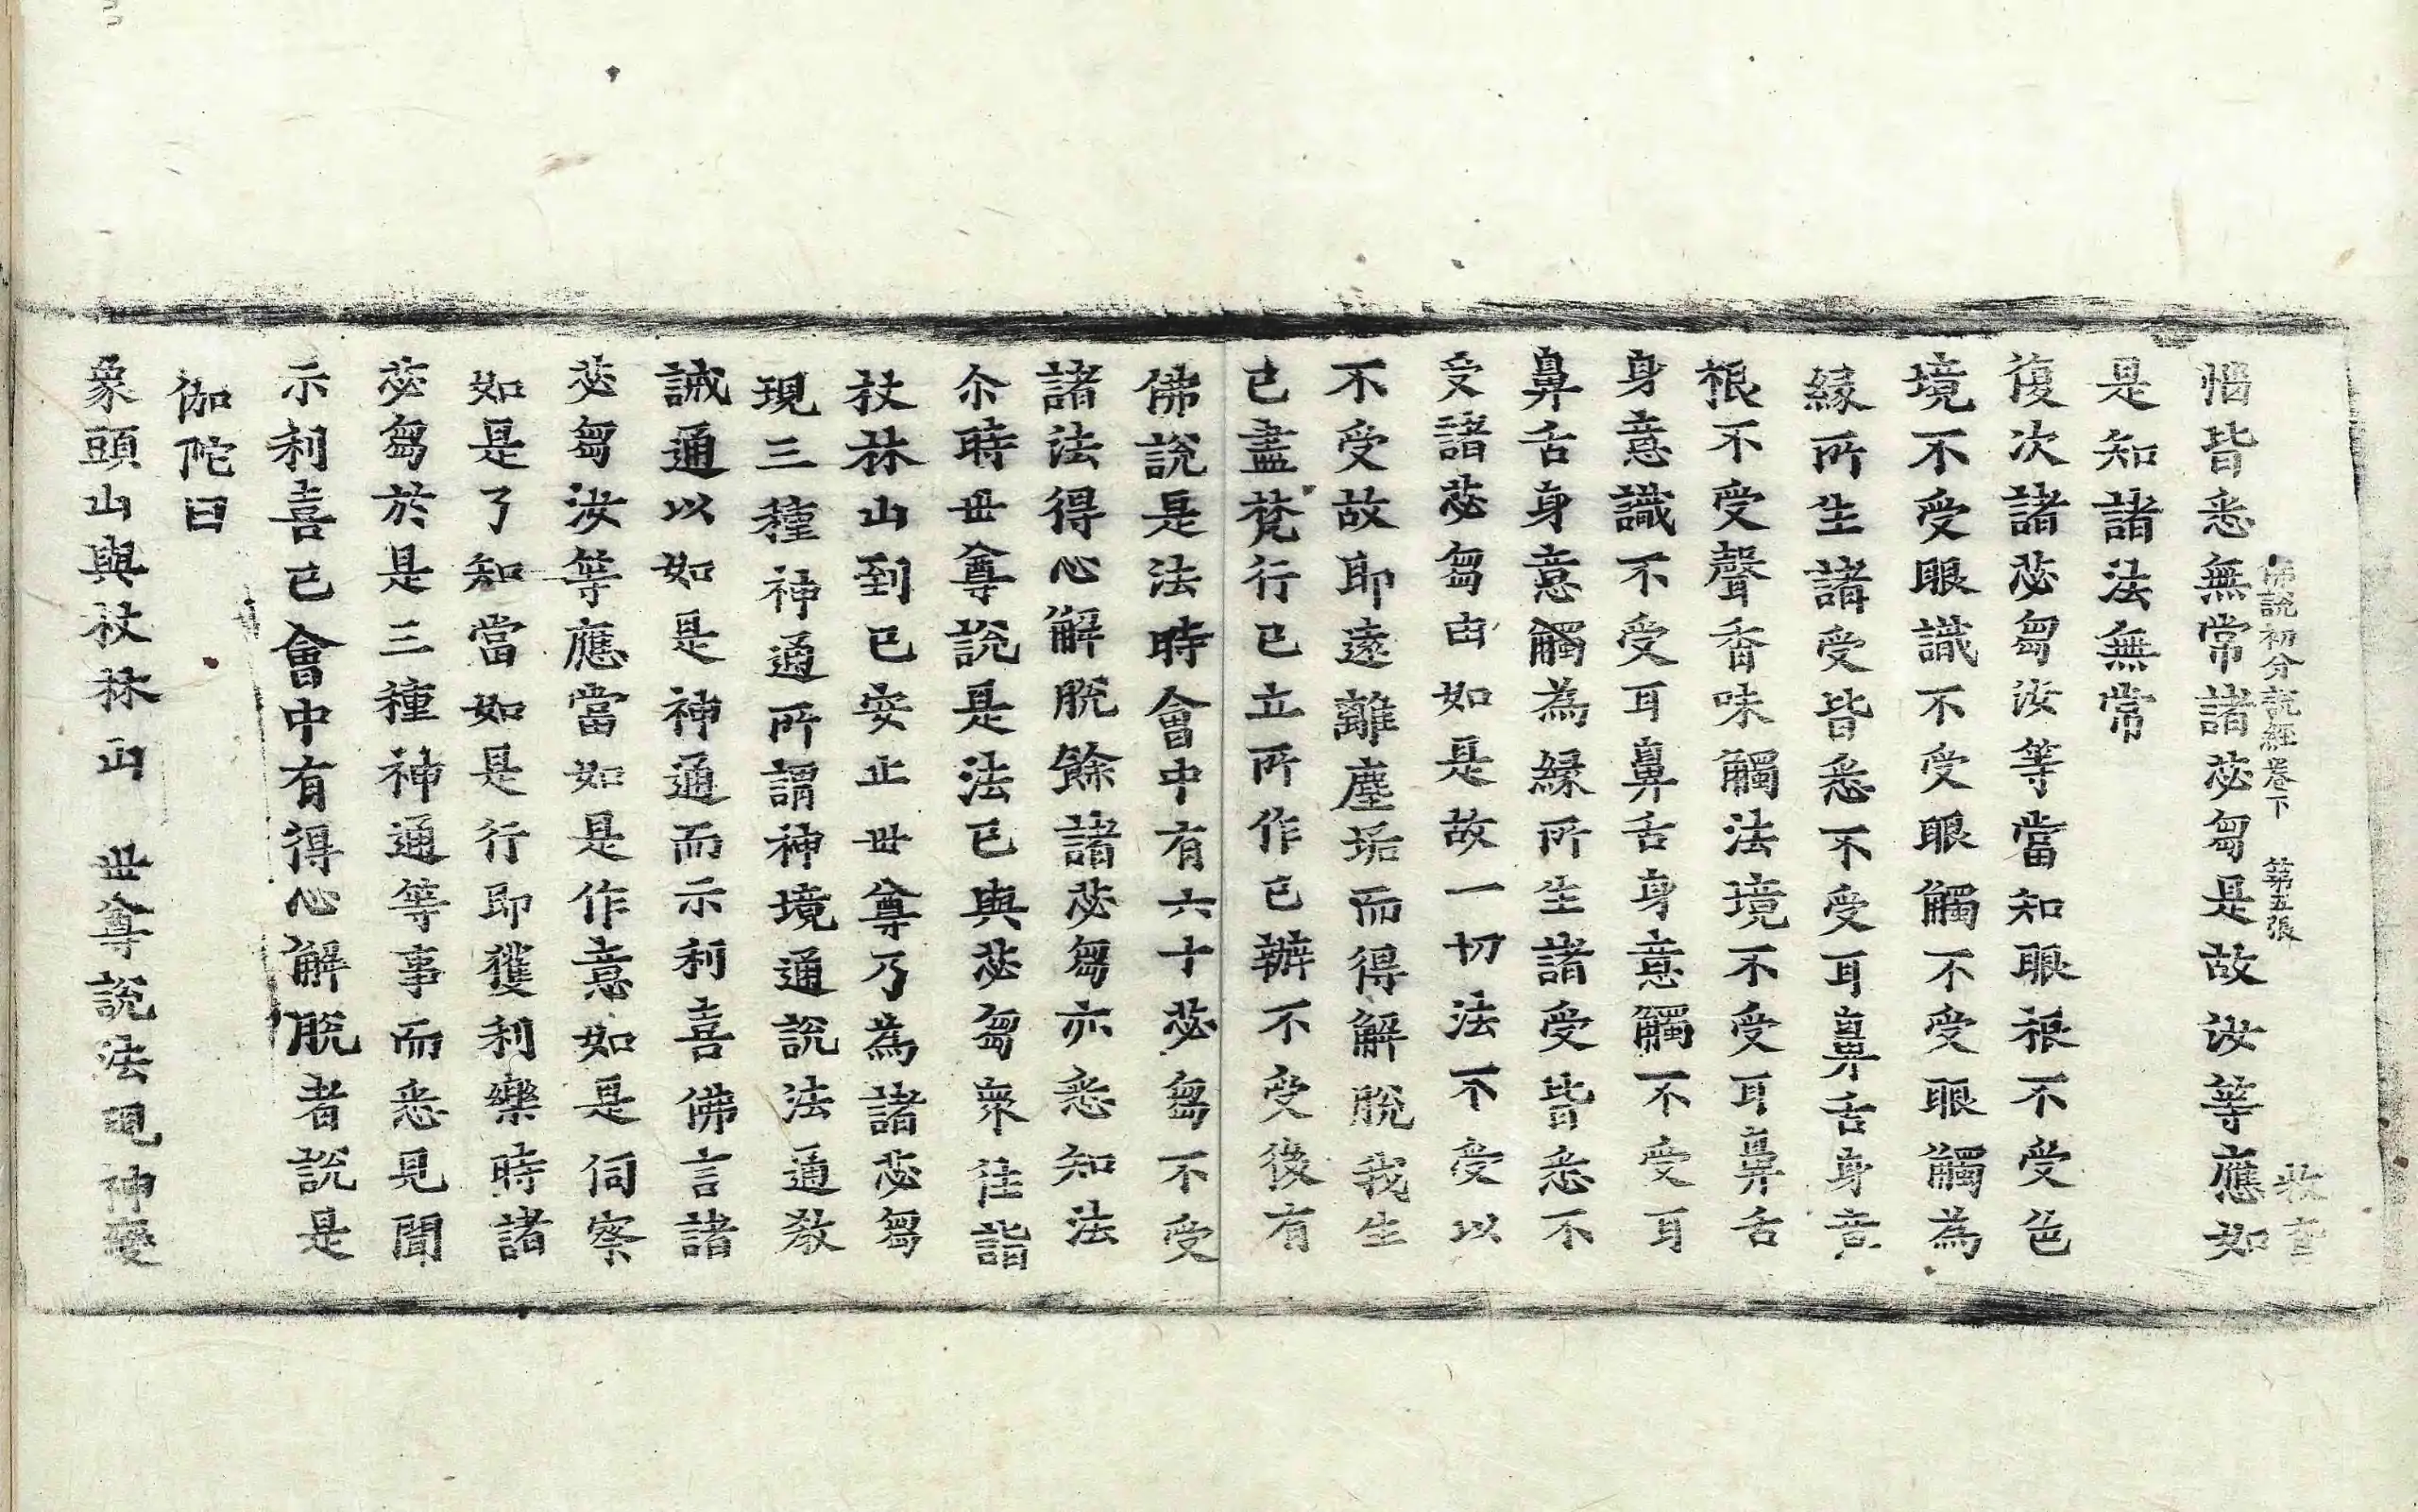 惱皆悉無常諸苾芻是故汝等應如
佛說初分說經卷下 第五張
是知諸法無常
復次諸苾芻汝等當知眼根不受色
境不受眼識不受眼觸不受眼觸為
緣所生諸受皆悉不受耳鼻舌身意
根不受聲香味觸法境不受耳鼻舌
身意識不受耳鼻舌身意觸不受耳
鼻舌身意觸為緣所生諸受皆悉不
受諸苾芻由如是故一切法不受以
不受故即遠離塵垢而得解脫我生
已盡梵行已立所作已辦不受後有
佛說是法時會中有六十苾芻不受
諸法得心解脫餘諸苾芻亦悉知法
尒時世尊說是法已與苾芻衆往詣
杖林山到已安止世尊乃為諸苾芻
現三種神通所謂神境通說法通教
誡通以如是神通而示利喜佛言諸
苾芻汝等應當如是作意如是伺察
如是了知當如是行即獲利樂時諸
苾芻於是三種神通等事而悉見聞
示利喜已會中有得心解脫者說是
伽陀曰
象頭山與杖林山 世尊說法現神變